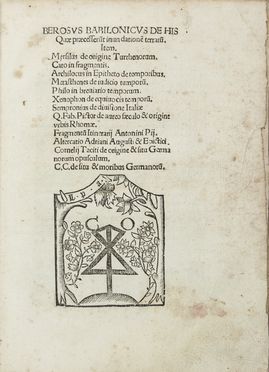 BEROSVS BABILONICVS DE HIS
Quæ præcesserūt inundationē terrarū.
Item.
Myrsilus de origine Turrhenorum.
Cato in fragmentis.
Archilocus in Epitheto de temporibus.
Metasthenes de iudicio temporū.
Philo in breuiario temporum.
Xenophon de equiuocis temporū.
Sempronius de diuisione Italiæ
Q. Fab. Pictor de aureo sæculo & origine
vrbis Rhomæ.
Fragmentū Itinerarij Antonini Pij.
Altercatio Adriani Augusti & Epictici.
Cornelij Taciti de origine & situ Germa
norum opusculum.
C.C. de situ & moribus Germanorū.
C O